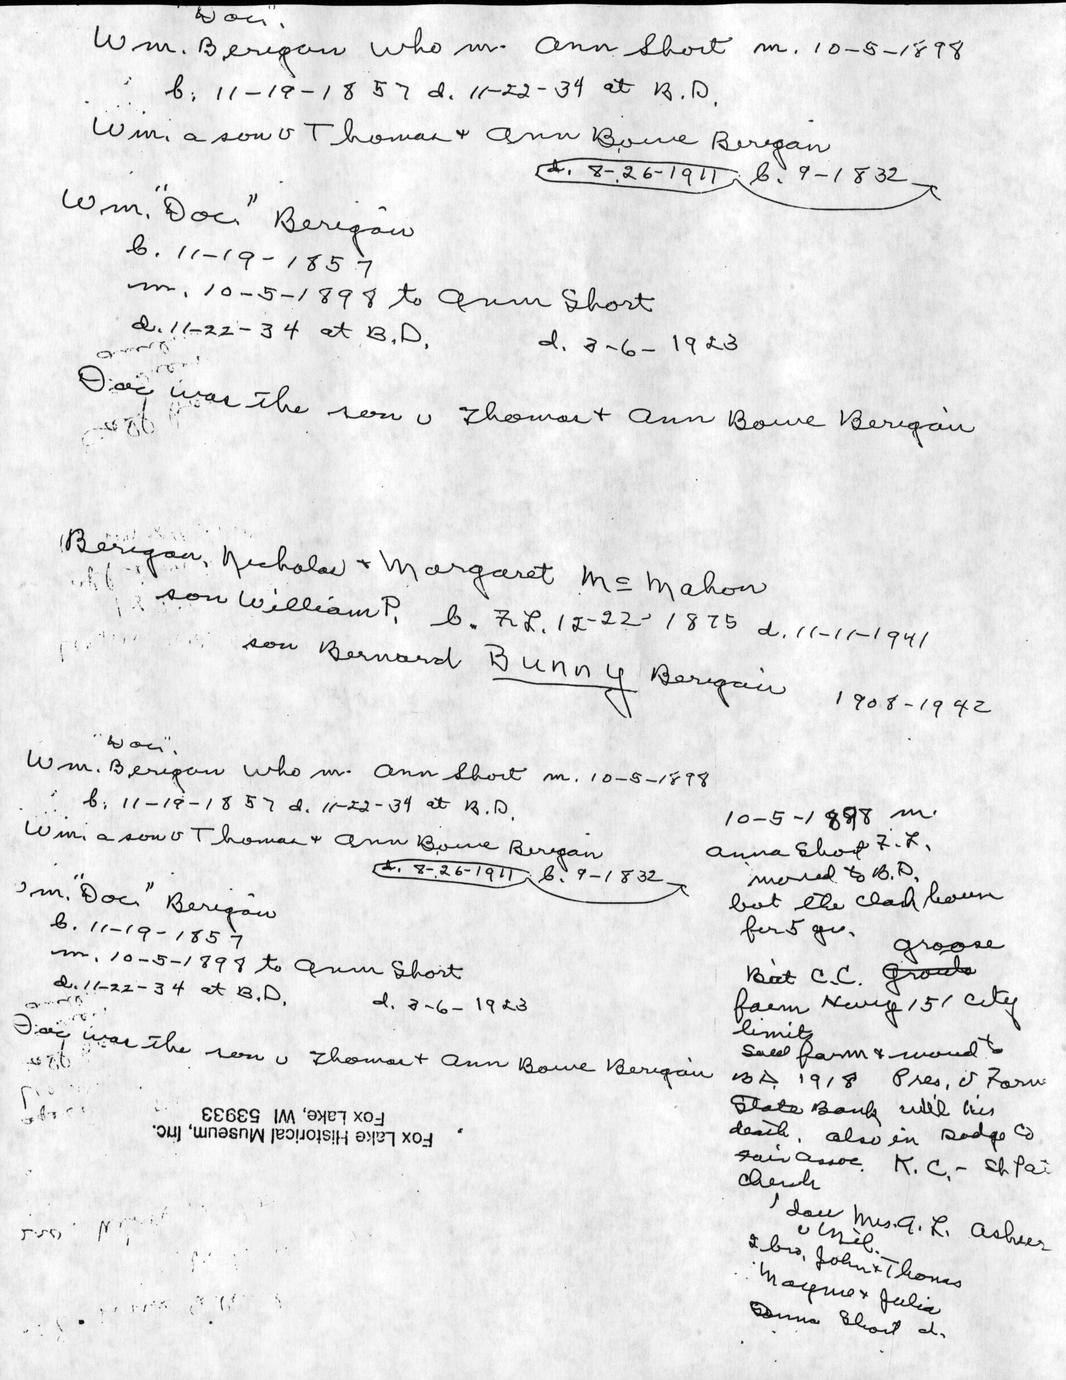 "Doc".
Wm. Berigan who m. Ann Short m. 10-5-1898
b. 11-19-1857 d. 11-22-34 at B.D.
Wm. a son o Thomas + Ann Bowe Berigan
d. 8-26-1911 b. 9-1832
Wm. "Doc" Berigan
b. 11-19-1857
m. 10-5-1898 to Ann Short
d. 11-22-34 at B.D. d. 3-6-1923
Doc was the son o Thomas + Ann Bowe Berigan
Berigan, Nicholas + Margaret McMahon
son William P. b. F.L. 12-22-1875 d. 11-11-1941
son Bernard Bunny Berigan 1908-1942
"Doc".
Wm. Berigan who m. Ann Short m. 10-5-1898
b. 11-19-1857 d. 11-22-34 at B.D.
Wm. a son o Thomas + Ann Bowe Berigan
d. 8-26-1911 b. 9-1832
Wm. "Doc" Berigan
b. 11-19-1857
m. 10-5-1898 to Ann Short
d. 11-22-34 at B.D. d. 3-6-1923
Doc was the son o Thomas + Ann Bowe Berigan
Fox Lake Historical Museum, Inc.
Fox Lake, WI 53933
10-5-1898 m.
Anna Short F.L.
moved to B.D.
bot the Clark
for 5 yr.
groose
Bot C.C.
farm Hwy 151 city
limits
sold farm + moved to
B.D. 1918 Pres. o Farm
State Bank until his
death. also in Dodge Co
Fair Assoc. K.C. - St Pat
Church
1 dau Mrs. A. L. Asheer
o Mil.
2 bro, John + Thomas
Mayme + Julia
Anna Short d.